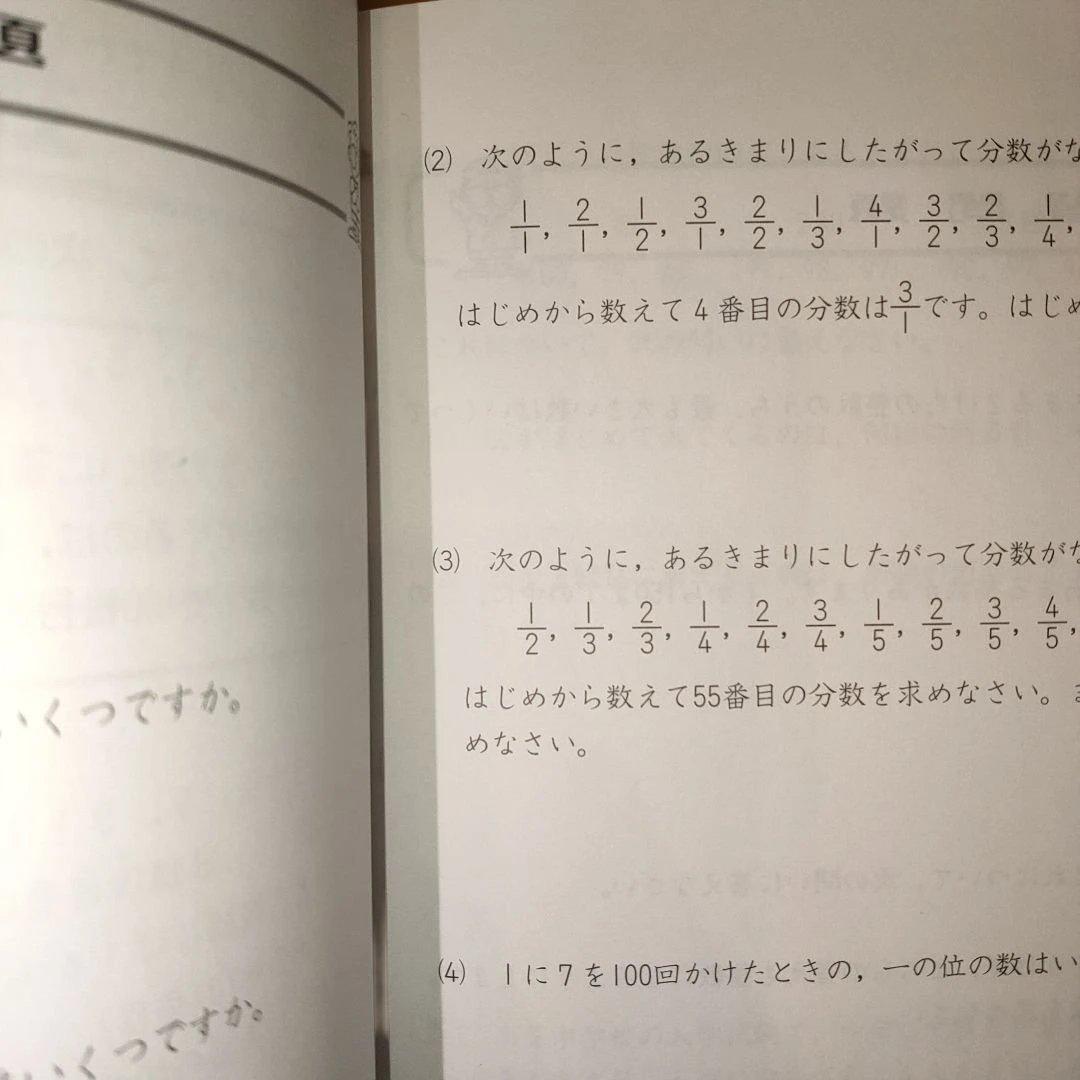 頁
いくつですか。
いくつですか。
(2) 次のように，あるきまりにしたがって分数がな
1/1, 2/1, 1/2, 3/1, 2/2, 1/3, 4/1, 3/2, 2/3, 1/4,
はじめから数えて4番目の分数は3/1です。はじめ
(3) 次のように，あるきまりにしたがって分数がな
1/2, 1/3, 2/3, 1/4, 2/4, 3/4, 1/5, 2/5, 3/5, 4/5,
はじめから数えて55番目の分数を求めなさい。ま
めなさい。
(4) 1に7を100回かけたときの，一の位の数はい